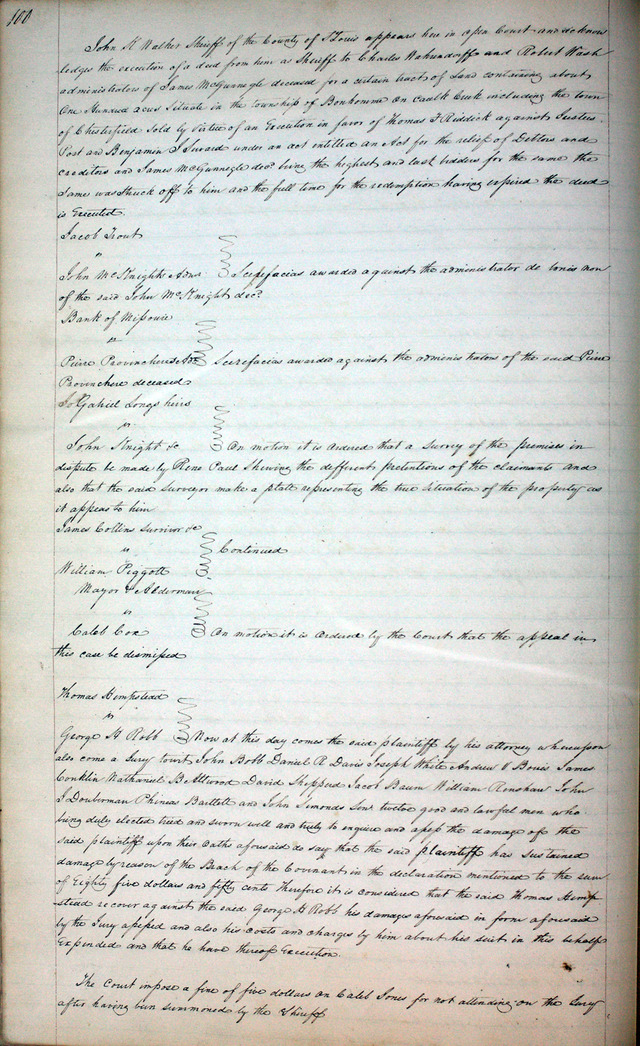 100
John K Walker Sheriff of the County of St Louis appears here in open Court and acknow
ledges the execution of a deed from him as Sheriff to Charles Wahrendorff and Robert Wash
administrators of James McGunnegle deceased for a certain tract of Land containing about
One Hundred acres Situate in the township of Bonhomme on Caulk Creek including the town
of Chesterfield Sold by Virtue of an Execution in favor of Thomas F Riddick against Justus
Post and Benjamin J Seward under an act entitled an Act for the relief of Debtors and
creditors and James McGunnegle decd being the highest and last bidders for the same the
Same was Struck off to him and the full time for the redemption having expired the deed
is Executed
Jacob Trout
"
John McKnights Admr Scirefacias awarded against the administrator de bonis non
of the said John McKnight decd
Bank of Missouri
vs
Pierre Provenchere Adr Scirefacias awarded against the administrators of the said Pierre
Provenchere deceased
Gabriel Longs heirs
vs
John Knight &c On motion it is ordered that a Survey of the premises in
dispute be made by Rene Paul Shewing the different pretentions of the claimants and
also that the said Surveyor make a plat representing the true Situation of the property as
it appears to him
James Collins Survivor &c
vs Continued
William Piggott
Mayor & Alderman
vs
Caleb Cox On motion it is ordered by the Court that the appeal in
this case be dismissed
Thomas Hempstead
vs
George H Robb Now at this day comes the said plaintiff by his attorney whereupon
also come a Jury towit John Bobb Daniel R Davis Joseph White Andrew V Bouis James
Conklin Nathaniel B Attwood David Shepperd Jacob Baum William Renshaw John
J Douberman Phineas Bartlett and John Simonds Senr twelve good and lawful men who
being duly elected tried and sworn well and truly to enquire and assess the damage of the
said plaintiff upon their Oaths aforesaid do say that the said plaintiff has sustained
damage by reason of the Breach of the Covenant in the declaration mentioned to the sum
of Eighty five dollars and fifty cents Therefore it is considered that the said Thomas Hemp
stead recover against the said George H Robb his damages aforesaid in form aforesaid
by the Jury assessed and also his costs and charges by him about his suit in this behalf
Expended and that he have thereof Execution.
The Court impose a fine of five dollars on Caleb Jones for not attending on the Jury
after having been summoned by the Sheriff